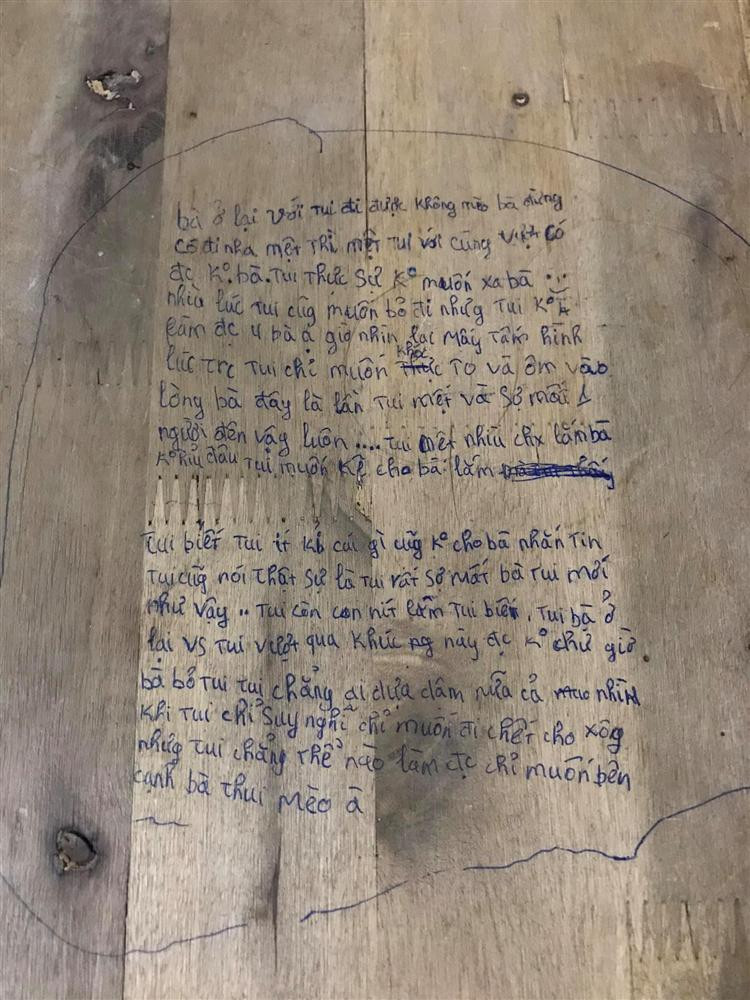 bà ở lại với tui đi được không mèo bà đừng
có đi nha mệt thì mệt tui với cùng vượt có
đc k°. bà. tui thực sự k° muốn xa bà ...
nhiều lúc tui cũg muốn bỏ đi nhưg tui k°
làm đc u bà ạ giờ nhìn lại mấy tấm hình
lúc trc tui chỉ muốn khóc to và ôm vào
lòng bà đây là lần tui mệt và sợ mất 1
người đến vậy luôn .... tui mệt nhìu chx lắm bà
k° hỉu đâu tui muốn kể cho bà lắm
tui biết tui ít kỉ cái gì cũg k° cho bà nhắn tin
tui cũg nói thật sự là tui rất sợ mất bà tui mới
như vậy .. tui còn con nít lắm tui biết. tui bà ở
lại vs tui vượt qua khúc ng này đc k° chứ giờ
bà bỏ tui tui chẳng ai dựa dẫm nữa cả nhìu
khi tui chỉ suy nghĩ chỉ muốn đi chết cho xôg
nhưg tui chẳng thể nào làm đc chỉ muốn bên
cạnh bà thui mèo à